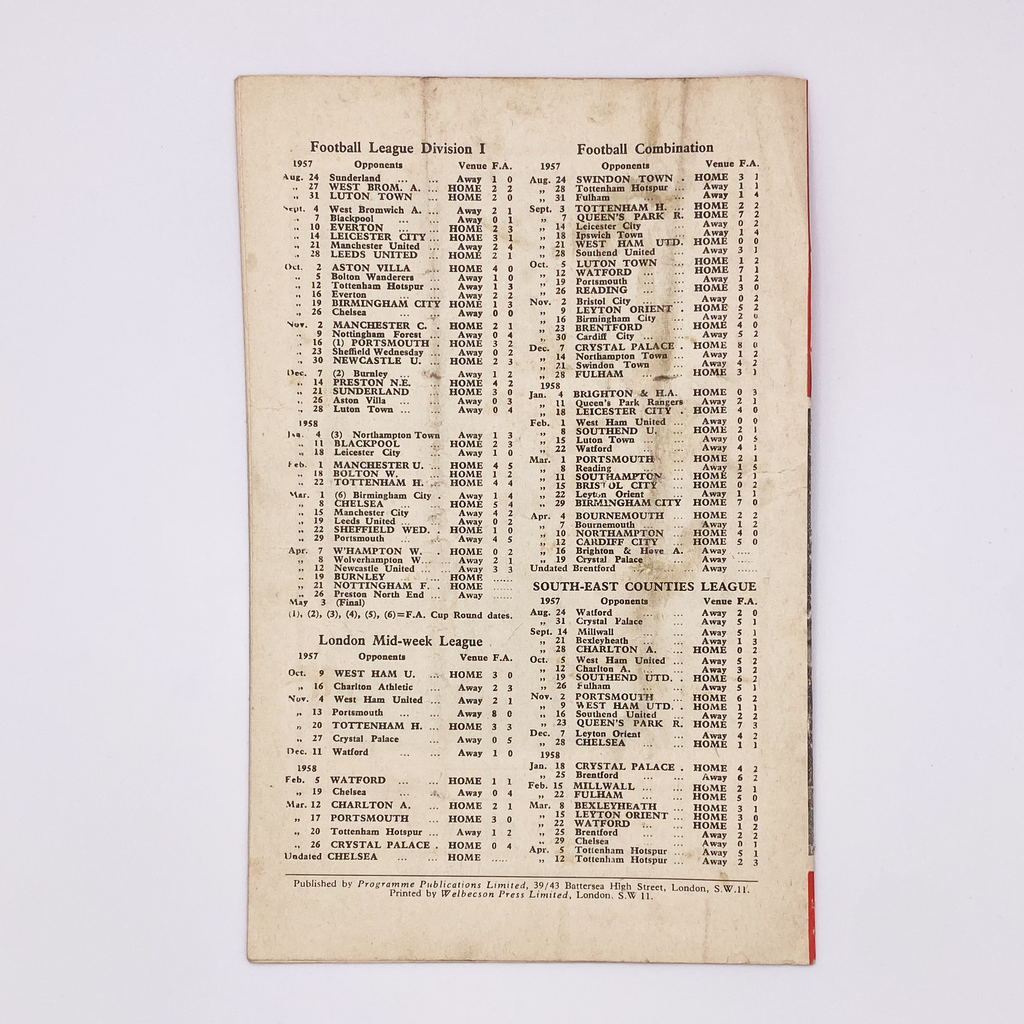 Football League Division I
1957 Opponents Venue F.A.
Aug. 24 Sunderland ... ... Away 1 0
„ 27 WEST BROM. A. ... HOME 2 2
„ 31 LUTON TOWN ... HOME 2 0
Sept. 4 West Bromwich A. ... Away 2 1
„ 7 Blackpool ... ... Away 0 1
„ 10 EVERTON ... ... HOME 2 3
„ 14 LEICESTER CITY ... HOME 3 1
„ 21 Manchester United ... Away 2 4
„ 28 LEEDS UNITED ... HOME 2 1
Oct. 2 ASTON VILLA ... HOME 4 0
„ 5 Bolton Wanderers ... Away 1 0
„ 12 Tottenham Hotspur ... Away 1 3
„ 16 Everton ... ... Away 2 2
„ 19 BIRMINGHAM CITY HOME 1 3
„ 26 Chelsea ... ... Away 0 0
Nov. 2 MANCHESTER C. . HOME 2 1
„ 9 Nottingham Forest ... Away 0 4
„ 16 (1) PORTSMOUTH . HOME 3 2
„ 23 Sheffield Wednesday ... Away 0 2
„ 30 NEWCASTLE U. ... HOME 2 3
Dec. 7 (2) Burnley ... Away 1 2
„ 14 PRESTON N.E. ... HOME 4 2
„ 21 SUNDERLAND ... HOME 3 0
„ 26 Aston Villa ... ... Away 0 3
„ 28 Luton Town ... ... Away 0 4
1958
Jan. 4 (3) Northampton Town Away 1 3
„ 11 BLACKPOOL ... HOME 2 3
„ 18 Leicester City ... Away 1 0
Feb. 1 MANCHESTER U. ... HOME 4 5
„ 18 BOLTON W. ... HOME 1 2
„ 22 TOTTENHAM H. ... HOME 4 4
Mar. 1 (6) Birmingham City . Away 1 4
„ 8 CHELSEA ... ... HOME 5 4
„ 15 Manchester City ... Away 4 2
„ 19 Leeds United ... ... Away 0 2
„ 22 SHEFFIELD WED. . HOME 1 0
„ 29 Portsmouth ... ... Away 4 5
Apr. 7 W'HAMPTON W. . HOME 0 2
„ 8 Wolverhampton W. ... Away 2 1
„ 12 Newcastle United ... Away 3 3
„ 19 BURNLEY ... HOME ......
„ 21 NOTTINGHAM F. . HOME ......
„ 26 Preston North End ... Away ......
May 3 (Final)
(1), (2), (3), (4), (5), (6)=F.A. Cup Round dates.
London Mid-week League
1957 Opponents Venue F.A.
Oct. 9 WEST HAM U. ... HOME 3 0
„ 16 Charlton Athletic ... Away 2 3
Nov. 4 West Ham United ... Away 2 1
„ 13 Portsmouth ... ... Away 8 0
„ 20 TOTTENHAM H. ... HOME 3 3
„ 27 Crystal Palace ... Away 0 5
Dec. 11 Watford ... ... Away 1 0
1958
Feb. 5 WATFORD ... ... HOME 1 1
„ 19 Chelsea ... ... Away 0 4
Mar. 12 CHARLTON A. ... HOME 2 1
„ 17 PORTSMOUTH ... HOME 3 0
„ 20 Tottenham Hotspur ... Away 1 2
„ 26 CRYSTAL PALACE . HOME 0 4
Undated CHELSEA ... ... HOME ......
Football Combination
1957 Opponents Venue F.A.
Aug. 24 SWINDON TOWN . HOME 3 1
„ 28 Tottenham Hotspur ... Away 1 1
„ 31 Fulham ... ... Away 1 4
Sept. 3 TOTTENHAM H. ... HOME 2 2
„ 7 QUEEN'S PARK R. HOME 7 2
„ 14 Leicester City ... Away 0 2
„ 18 Ipswich Town ... Away 1 4
„ 21 WEST HAM UTD. HOME 0 0
„ 28 Southend United ... Away 3 1
Oct. 5 LUTON TOWN ... HOME 1 2
„ 12 WATFORD ... ... HOME 7 1
„ 19 Portsmouth ... ... Away 1 2
„ 26 READING ... ... HOME 3 0
Nov. 2 Bristol City ... ... Away 0 2
„ 9 LEYTON ORIENT . HOME 5 2
„ 16 Birmingham City ... Away 2 0
„ 23 BRENTFORD ... HOME 4 0
„ 30 Cardiff City ... ... Away 5 2
Dec. 7 CRYSTAL PALACE . HOME 8 0
„ 14 Northampton Town ... Away 1 2
„ 21 Swindon Town ... Away 4 2
„ 28 FULHAM ... ... HOME 3 1
1958
Jan. 4 BRIGHTON & H.A. HOME 0 3
„ 11 Queen's Park Rangers Away 2 1
„ 18 LEICESTER CITY . HOME 4 0
Feb. 1 West Ham United ... Away 0 0
„ 8 SOUTHEND U. ... HOME 2 1
„ 15 Luton Town ... Away 0 5
„ 22 Watford ... ... Away 4 1
Mar. 1 PORTSMOUTH ... HOME 2 1
„ 8 Reading ... ... Away 1 5
„ 11 SOUTHAMPTON ... HOME 2 1
„ 15 BRISTOL CITY ... HOME 0 2
„ 22 Leyton Orient ... Away 1 1
„ 29 BIRMINGHAM CITY HOME 7 0
Apr. 4 BOURNEMOUTH ... HOME 2 2
„ 7 Bournemouth ... Away 1 2
„ 10 NORTHAMPTON ... HOME 4 0
„ 12 CARDIFF CITY ... HOME 5 0
„ 16 Brighton & Hove A. Away ......
„ 19 Crystal Palace ... Away ......
Undated Brentford ... ... Away ......
SOUTH-EAST COUNTIES LEAGUE
1957 Opponents Venue F.A.
Aug. 24 Watford ... ... Away 2 0
„ 31 Crystal Palace ... Away 5 1
Sept. 14 Millwall ... ... Away 5 1
„ 21 Bexleyheath ... Away 1 3
„ 28 CHARLTON A. ... HOME 0 2
Oct. 5 West Ham United ... Away 5 2
„ 12 Charlton A. ... Away 3 2
„ 19 SOUTHEND UTD. . HOME 6 2
„ 26 Fulham ... ... Away 5 1
Nov. 2 PORTSMOUTH ... HOME 6 2
„ 9 WEST HAM UTD. . HOME 1 1
„ 16 Southend United ... Away 2 2
„ 23 QUEEN'S PARK R. HOME 7 3
Dec. 7 Leyton Orient ... Away 4 2
„ 28 CHELSEA ... ... HOME 1 1
1958
Jan. 18 CRYSTAL PALACE . HOME 4 2
„ 25 Brentford ... ... Away 6 2
Feb. 15 MILLWALL ... ... HOME 2 1
„ 22 FULHAM ... ... HOME 5 0
Mar. 8 BEXLEYHEATH ... HOME 3 1
„ 15 LEYTON ORIENT ... HOME 3 0
„ 22 WATFORD ... ... HOME 1 2
„ 25 Brentford ... ... Away 2 2
„ 29 Chelsea ... ... Away 0 1
Apr. 5 Tottenham Hotspur ... Away 5 1
„ 12 Tottenham Hotspur ... Away 2 3
Published by Programme Publications Limited, 39/43 Battersea High Street, London, S.W.11.
Printed by Welbecson Press Limited, London. S.W 11.